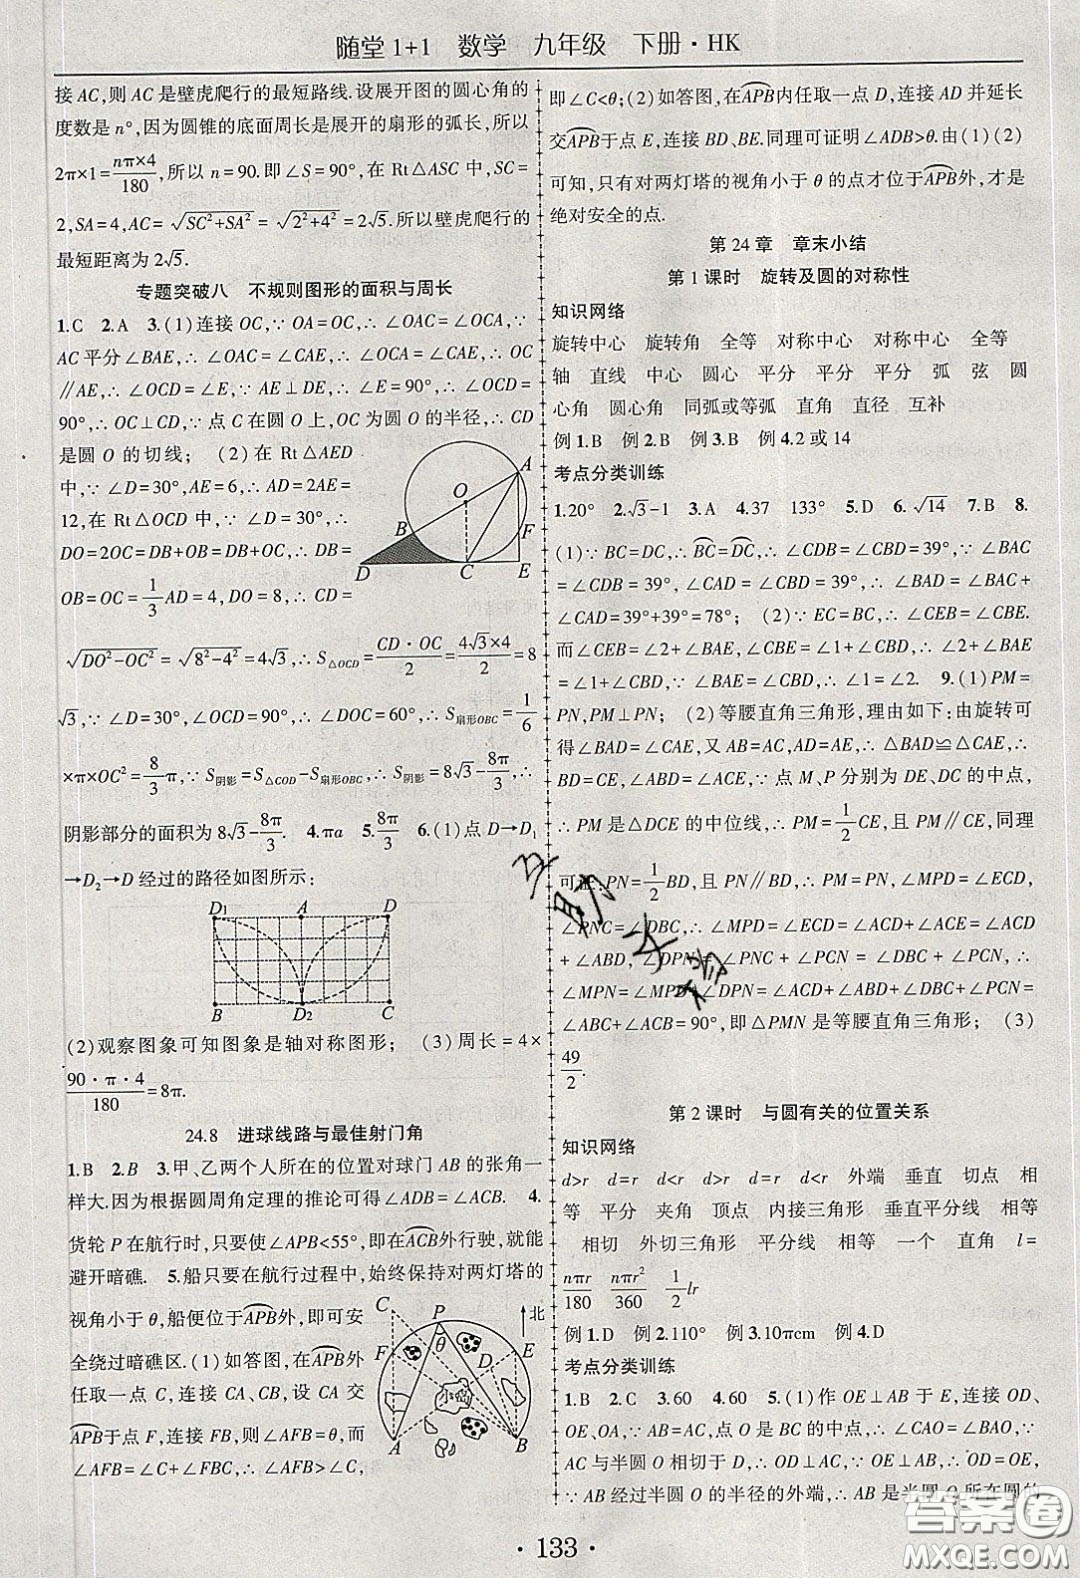 随堂1+1 数学 九年级 下册·HK
接AC,则AC是壁虎爬行的最短路线.设展开图的圆心角的
度数是n°,因为圆锥的底面周长是展开的扇形的弧长,所以
2π×1=nπ×4/180,所以n=90.即∠S=90°,在Rt△ASC中,SC=
2,SA=4,AC=√(SC²+SA²)=√(2²+4²)=2√5.所以壁虎爬行的
最短距离为2√5.
专题突破八 不规则图形的面积与周长
1.C 2.A 3.(1)连接OC,∵OA=OC,∴∠OAC=∠OCA,∵
AC平分∠BAE,∴∠OAC=∠CAE,∴∠OCA=∠CAE,∴OC
∥AE,∴∠OCD=∠E,∵AE⊥DE,∴∠E=90°,∴∠OCD=
90°,∴OC⊥CD,∵点C在圆O上,OC为圆O的半径,∴CD
是圆O的切线; (2)在Rt△AED
中,∵∠D=30°,AE=6,∴AD=2AE=
12,在Rt△OCD中,∵∠D=30°,∴
DO=2OC=DB+OB=DB+OC,∴DB=
OB=OC=1/3AD=4,DO=8,∴CD=
O A B F D C E
√(DO²-OC²)=√(8²-4²)=4√3,∴S△OCD=CD·OC/2=4√3×4/2=8
√3,∵∠D=30°,∠OCD=90°,∴∠DOC=60°,∴S扇形OBC=1/6
×π×OC²=8/3π,∵S阴影=S△COD-S扇形OBC,∴S阴影=8√3-8π/3,∴
阴影部分的面积为8√3-8π/3. 4.πa 5.8π/3 6.(1)点D→D₁
→D₂→D经过的路径如图所示:
D₁ A D
B D₂ C
(2)观察图象可知图象是轴对称图形; (3)周长=4×
90·π·4/180=8π.
24.8 进球线路与最佳射门角
1.B 2.B 3.甲、乙两个人所在的位置对球门AB的张角一
样大.因为根据圆周角定理的推论可得∠ADB=∠ACB. 4.
货轮P在航行时,只要使∠APB<55°,即在ACB外行驶,就能
避开暗礁. 5.船只要在航行过程中,始终保持对两灯塔的
视角小于θ,船便位于APB外,即可安
全绕过暗礁区.(1)如答图,在APB外
任取一点C,连接CA、CB,设CA交
APB于点F,连接FB,则∠AFB=θ,而
∠AFB=∠C+∠FBC,∴∠AFB>∠C,
C P 北 F θ E D A B
即∠C<θ;(2)如答图,在APB内任取一点D,连接AD并延长
交APB于点E,连接BD、BE.同理可证明∠ADB>θ.由(1)(2)
可知,只有对两灯塔的视角小于θ的点才位于APB外,才是
绝对安全的点.
第24章 章末小结
第1课时 旋转及圆的对称性
知识网络
旋转中心 旋转角 全等 对称中心 对称中心 全等
轴 直线 中心 圆心 平分 平分 平分 弧 弦 圆
心角 圆心角 同弧或等弧 直角 直径 互补
例1.B 例2.B 例3.B 例4.2或14
考点分类训练
1.20° 2.√3-1 3.A 4.37 133° 5.D 6.√14 7.B 8.
(1)∵BC=DC,∴BC=DC,∴∠CDB=∠CBD=39°,∵∠BAC
=∠CDB=39°,∠CAD=∠CBD=39°,∴∠BAD=∠BAC+
∠CAD=39°+39°=78°; (2)∵EC=BC,∴∠CEB=∠CBE.
而∠CEB=∠2+∠BAE,∠CBE=∠1+∠CBD,∴∠2+∠BAE
=∠1+∠CBD,∵∠BAE=∠CBD,∴∠1=∠2. 9.(1)PM=
PN,PM⊥PN; (2)等腰直角三角形,理由如下:由旋转可
得∠BAD=∠CAE,又AB=AC,AD=AE,∴△BAD≌△CAE,∴
BD=CE,∠ABD=∠ACE,∵点M、P分别为DE、DC的中点,
∴PM是△DCE的中位线,∴PM=1/2CE,且PM∥CE,同理
可证PN=1/2BD,且PN∥BD,∴PM=PN,∠MPD=∠ECD,
∠PNC=∠DBC,∴∠MPD=∠ECD=∠ACD+∠ACE=∠ACD
+∠ABD,∠DPN=∠PNC+∠PCN=∠DBC+∠PCN,∴
∠MPN=∠MPD+∠DPN=∠ACD+∠ABD+∠DBC+∠PCN=
∠ABC+∠ACB=90°,即△PMN是等腰直角三角形; (3)
49/2.
第2课时 与圆有关的位置关系
知识网络
d>r d=r d<r d>r d=r d<r 外端 垂直 切点 相
等 平分 夹角 顶点 内接三角形 垂直平分线 相等
相切 外切三角形 平分线 相等 一个 直角 l=
nπr/180 nπr²/360 1/2lr
例1.D 例2.110° 例3.10πcm 例4.D
考点分类训练
1.B 2.C 3.60 4.60 5.(1)作OE⊥AB于E,连接OD、
OE、OA,∵AB=AC,点O是BC的中点,∴∠CAO=∠BAO,∵
AC与半圆O相切于D,∴OD⊥AC,∵OE⊥AB,∴OD=OE,
∵AB经过半圆O的半径的外端,∴AB是半圆O所在圆的
·133·
答案圈
MXQE.COM